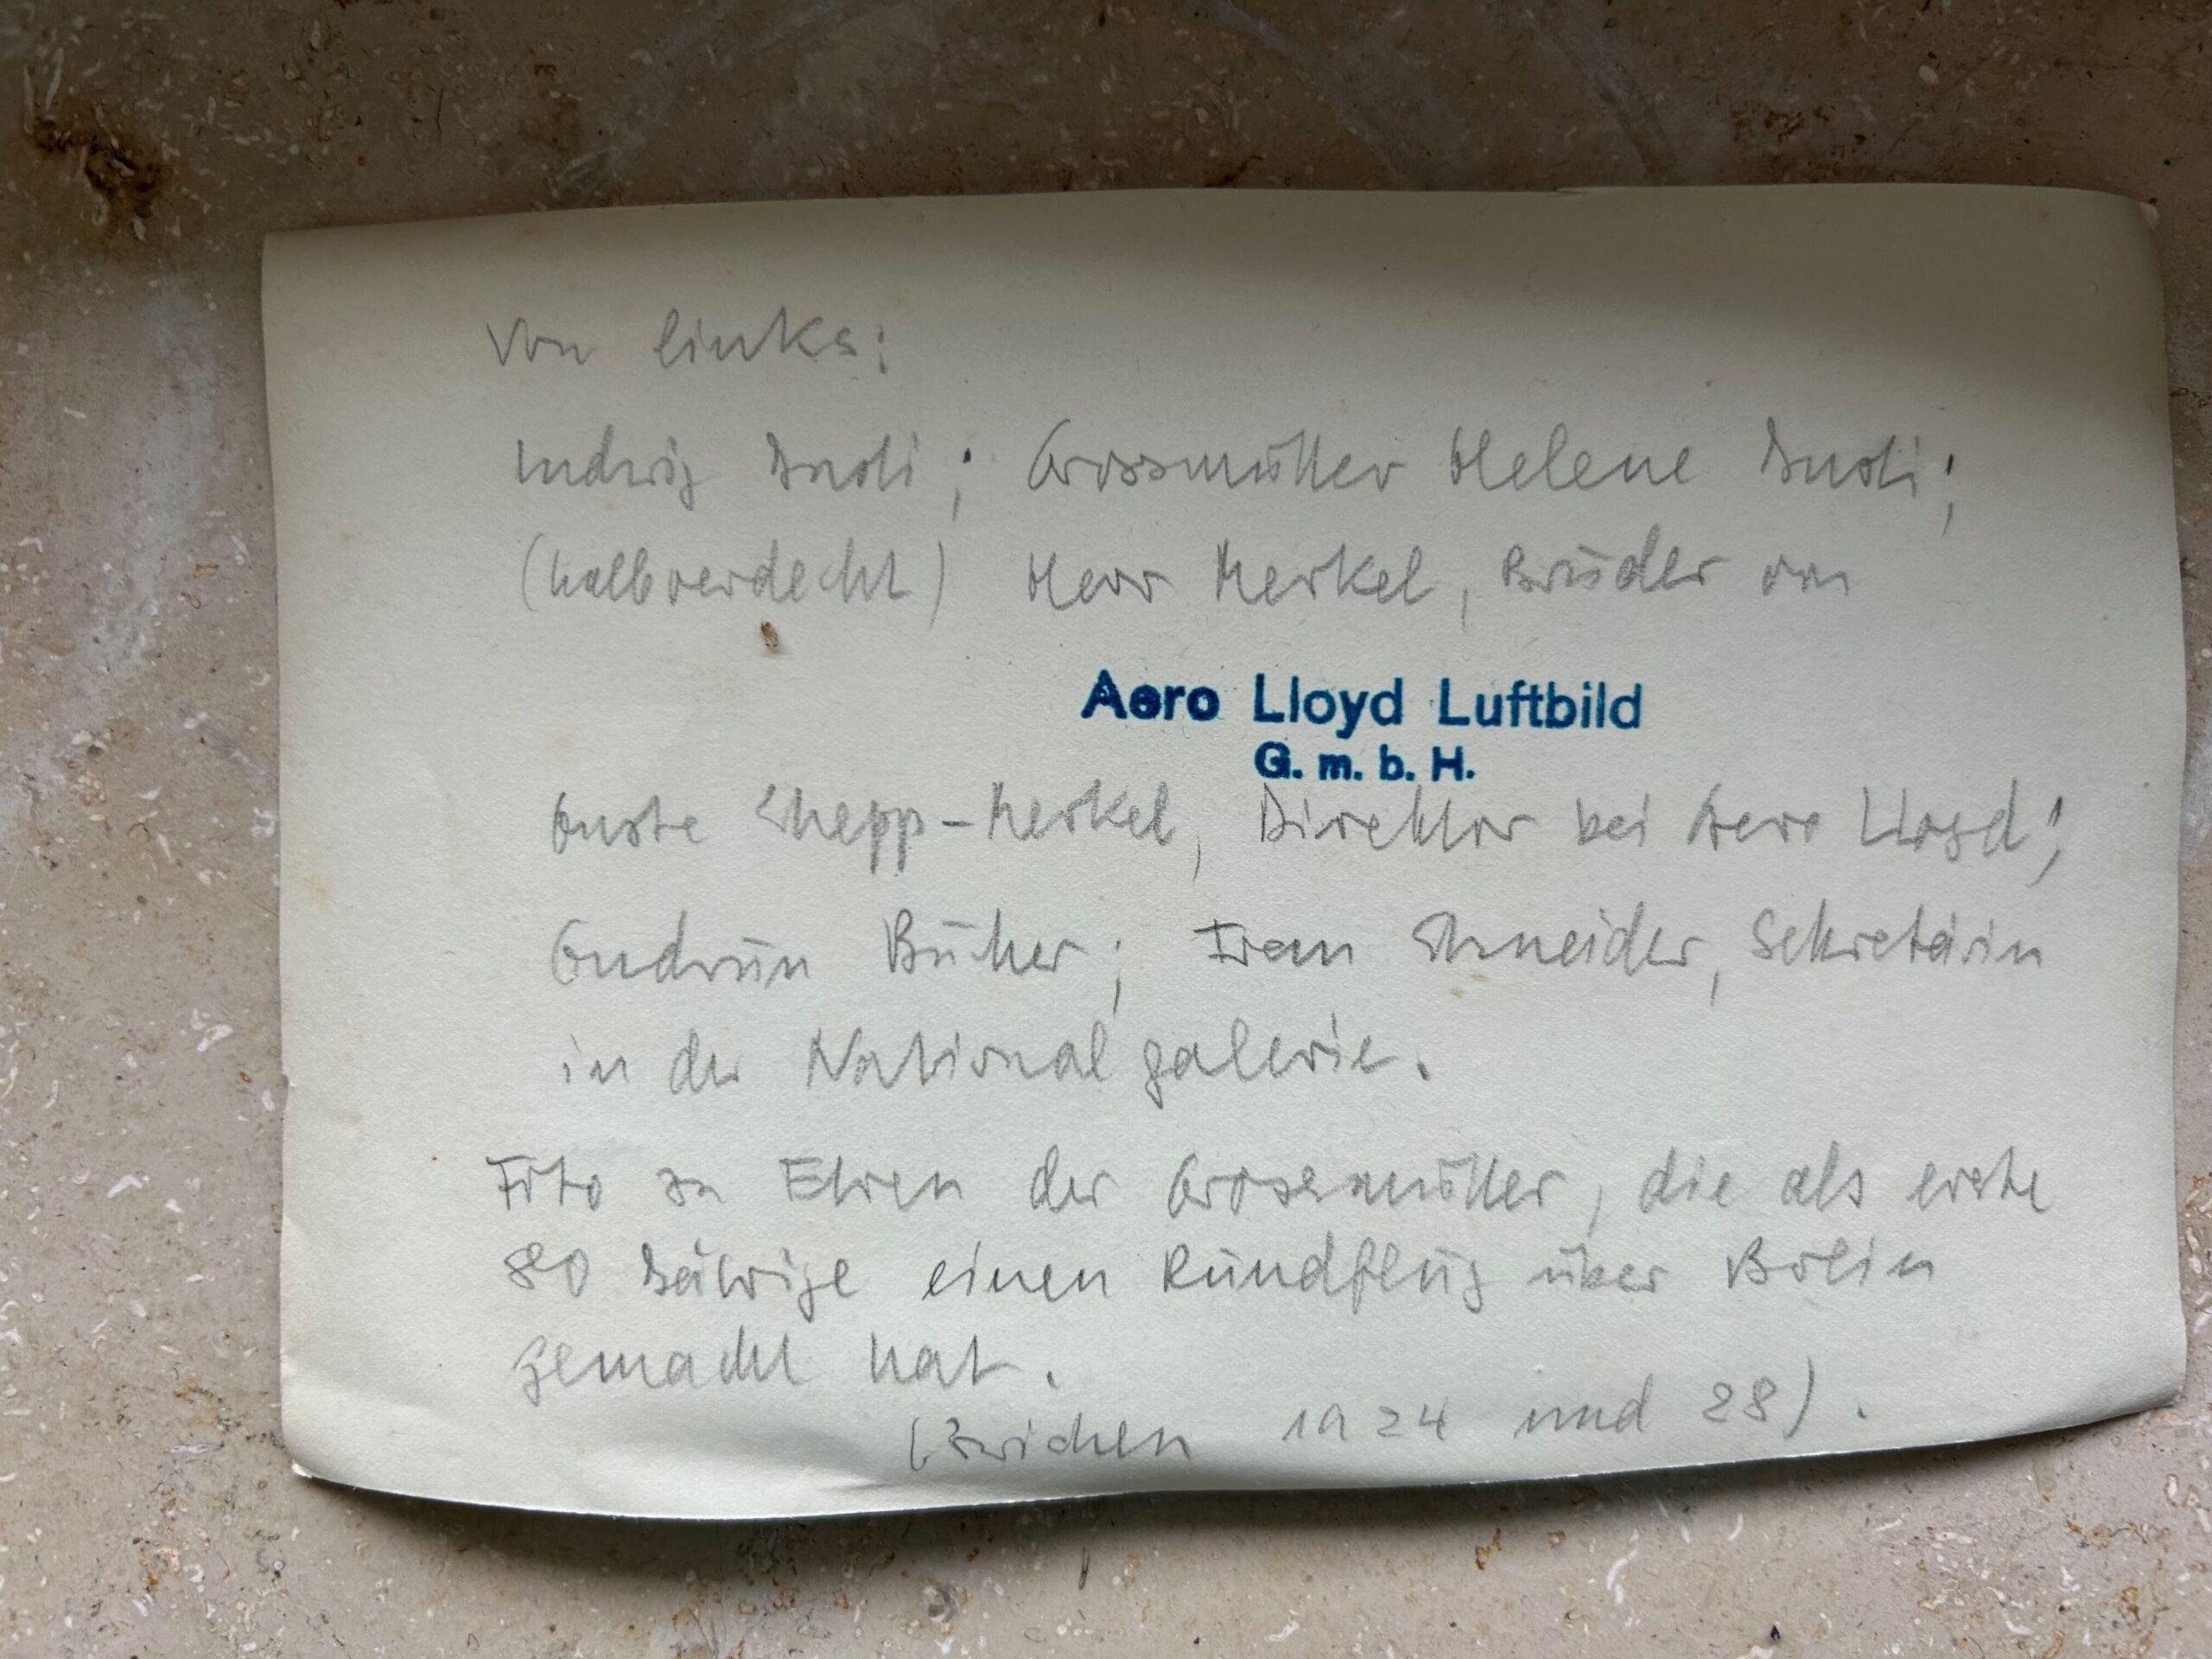 Von links:
Ludwig Justi; Grossmutter Helene Justi;
(halbverdeckt) Herr Merkel, Bruder von
Aero Lloyd Luftbild
G. m. b. H.
Guste Schepp-Merkel, Direktor bei Aero Lloyd;
Gudrun Bücher; Frau Schneider, Sekretärin
in der Nationalgalerie.
Foto zu Ehren der Grossmutter, die als erste
80 Jährige einen Rundflug über Berlin
gemacht hat.
(Zwischen 1924 und 28).